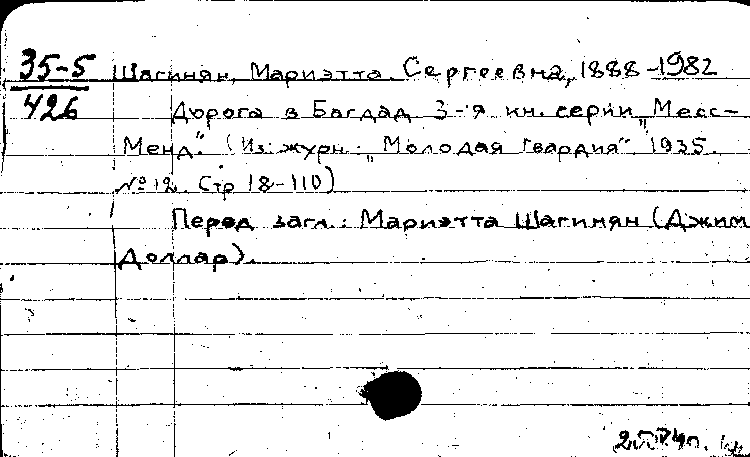 35-5 Шагинян, Мариэтта Сергеевна, 1888-1982
426 Дорога в Багдад 3-я кн. серии „Месс-
Менд". (Из журн.: „Молодая Гвардия" 1935.
№ 12. Стр 18-110)
Перед загл.: Мариэтта Шагинян (Джим
Доллар).